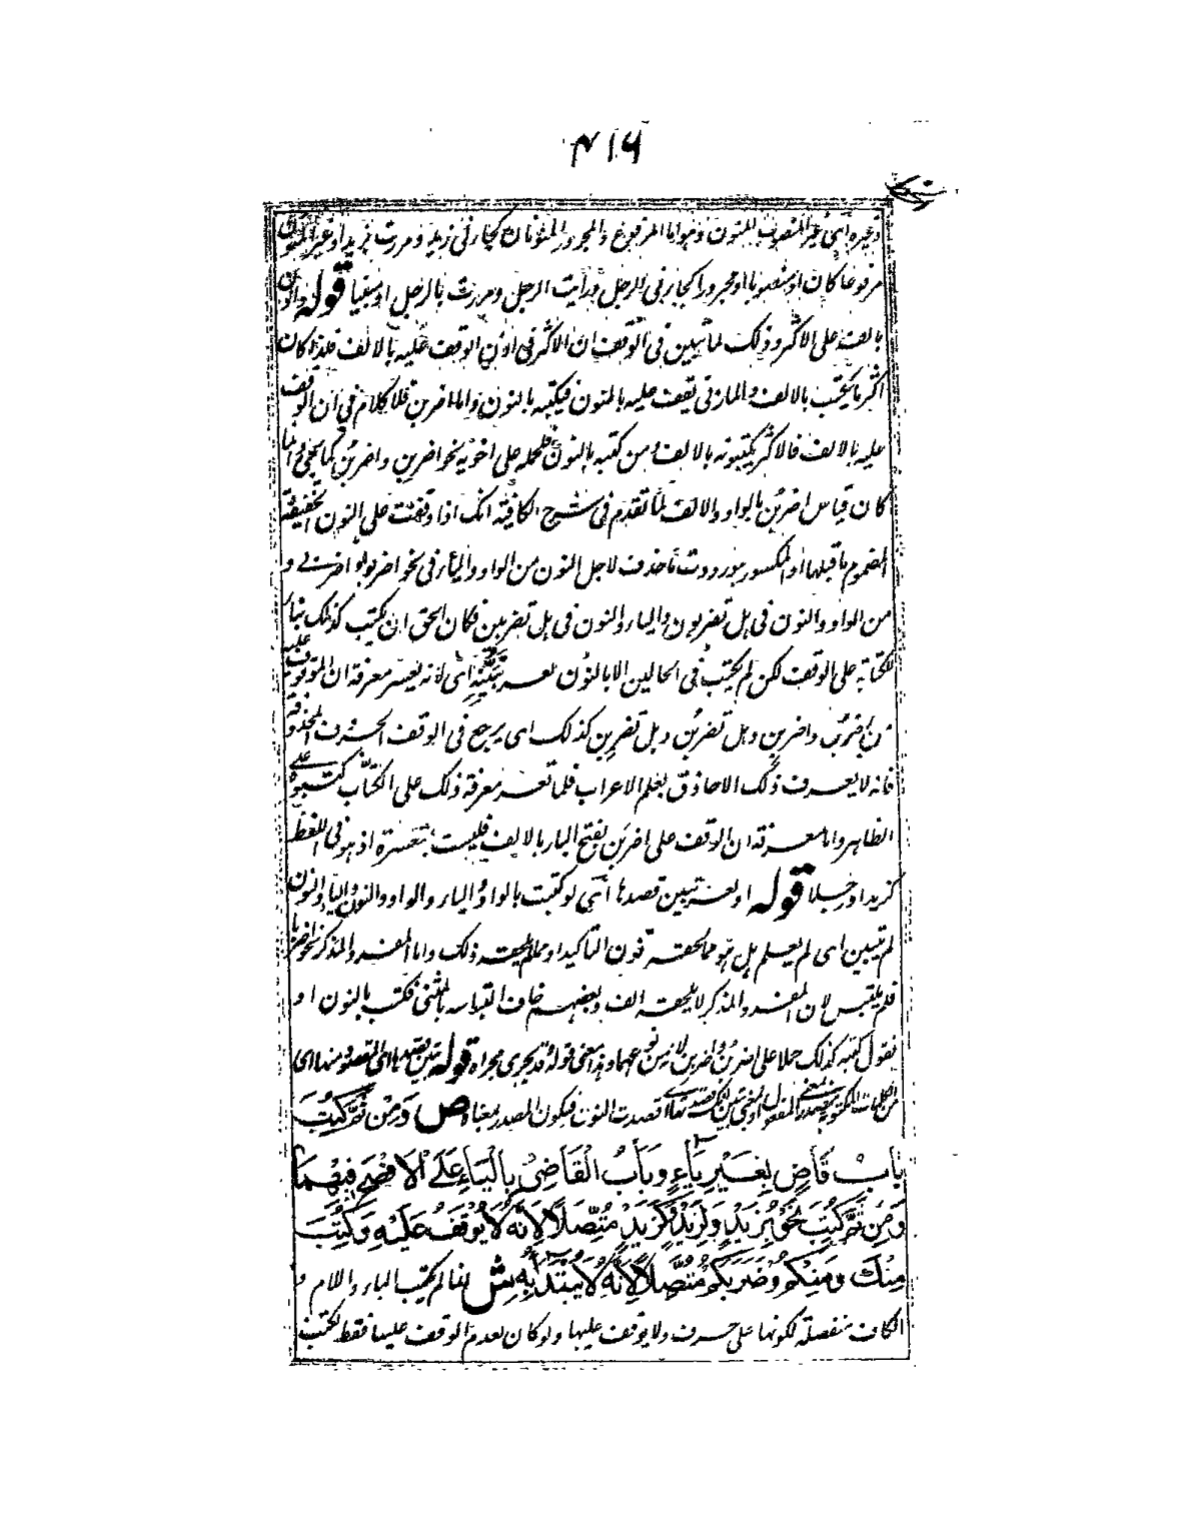 ۴۱۶
وغيره أى غير المنصوب المنون وهو اما المرفوع والمجرور المنونان كجاءنى زيد ومررت بزيد او غير المنون
مرفوعا كان او منصوبا او مجرورا كجاءنى الرجل ورأيت الرجل ومررت بالرجل او مبنيا قوله واذن
بالف على الاكثر وذلك لما تبين فى الوقف ان الاكثر فى اذن الوقف عليه بالالف فلذا كان
اكثر ما يكتب بالالف والمازنى يقف عليه بالنون فيكتبه بالنون واما اضربن فلا كلام فى ان الوقف
عليه بالالف فالاكثر يكتبونه بالالف ومن كتبه بالنون فلحمله على اخويه نحو اضربن واضربن كما يجئ وانما
كان قياس اضربن بالواو والالف لما تقدم فى شرح الكافية انك اذا وقفت على النون الخفيفة
المضموم ما قبلها او المكسور هو رددت ما حذف لاجل النون من الواو والياء فى نحو اضربوا واضربى و
من الواو والنون فى هل تضربون والياء والنون فى هل تضربين فكان الحق ان يكتب كذلك بناء
للكتابة على الوقف لكن لم يكتب فى الحالين الا بالنون لعسر تبينه اى لانه يعسر معرفة ان الموقوف عليه
من اضربن واضربن وهل تضربن وهل تضربن كذلك اى يرجع فى الوقف الحرف المحذوفة
فانه لا يعرف ذلك الا حاذق بعلم الاعراب فلما تعسر معرفة ذلك على الكتاب كتبوه على
الظاهر واما معرفة ان الوقف على اضربن بفتح الباء بالالف فليست بمتعسرة اذ هو فى اللفظ
كزيدا ورجلا قوله او لعسر تبين قصدها أى لو كتبت بالواو والياء والواو والنون والياء والنون
لم يتبين اى لم يعلم هل هو مما لحقه نون التأكيد او مما لم يلحقه ذلك واما المفرد المذكر نحو اضربا
فلم يلتبس لان المفرد المذكر لا يلحقه الف وبعضهم خاف التباسه بالمثنى فكتب بالنون او
نقول كتبه كذلك حملا على اضربن واضربن لانه من نوعهما وهذا معنى قوله قد يجرى مجراه قوله تبين قصدها اى المقصود منها اى
من الكلمات المكتوبة قصدت النون فيكون المصدر بمعناه ص وَمِنْ ثَمَّ كُتِبَ
بَابُ قَاضٍ بِغَيْرِ يَاءٍ وَبَابُ الْقَاضِىْ بِالْيَاءِ عَلَى الْاَفْصَحِ فِيْهِمَا
وَمِنْ ثَمَّ كُتِبَ نَحْوُ بِزَيْدٍ وَلِزَيْدٍ وَكَزَيْدٍ مُتَّصِلًا لِاَنَّهُ لَا يُوْقَفُ عَلَيْهِ وَكُتِبَ
مِنْكَ وَمِنْكُمْ وَضَرَبَكُمْ مُتَّصِلًا لِاَنَّهُ لَا يُبْتَدَأُ بِهِ ش انما لم يكتب الباء واللام و
الكاف منفصلة لكونها على حرف ولا يوقف عليها ولو كان لعدم الوقف عليها فقط لكتب